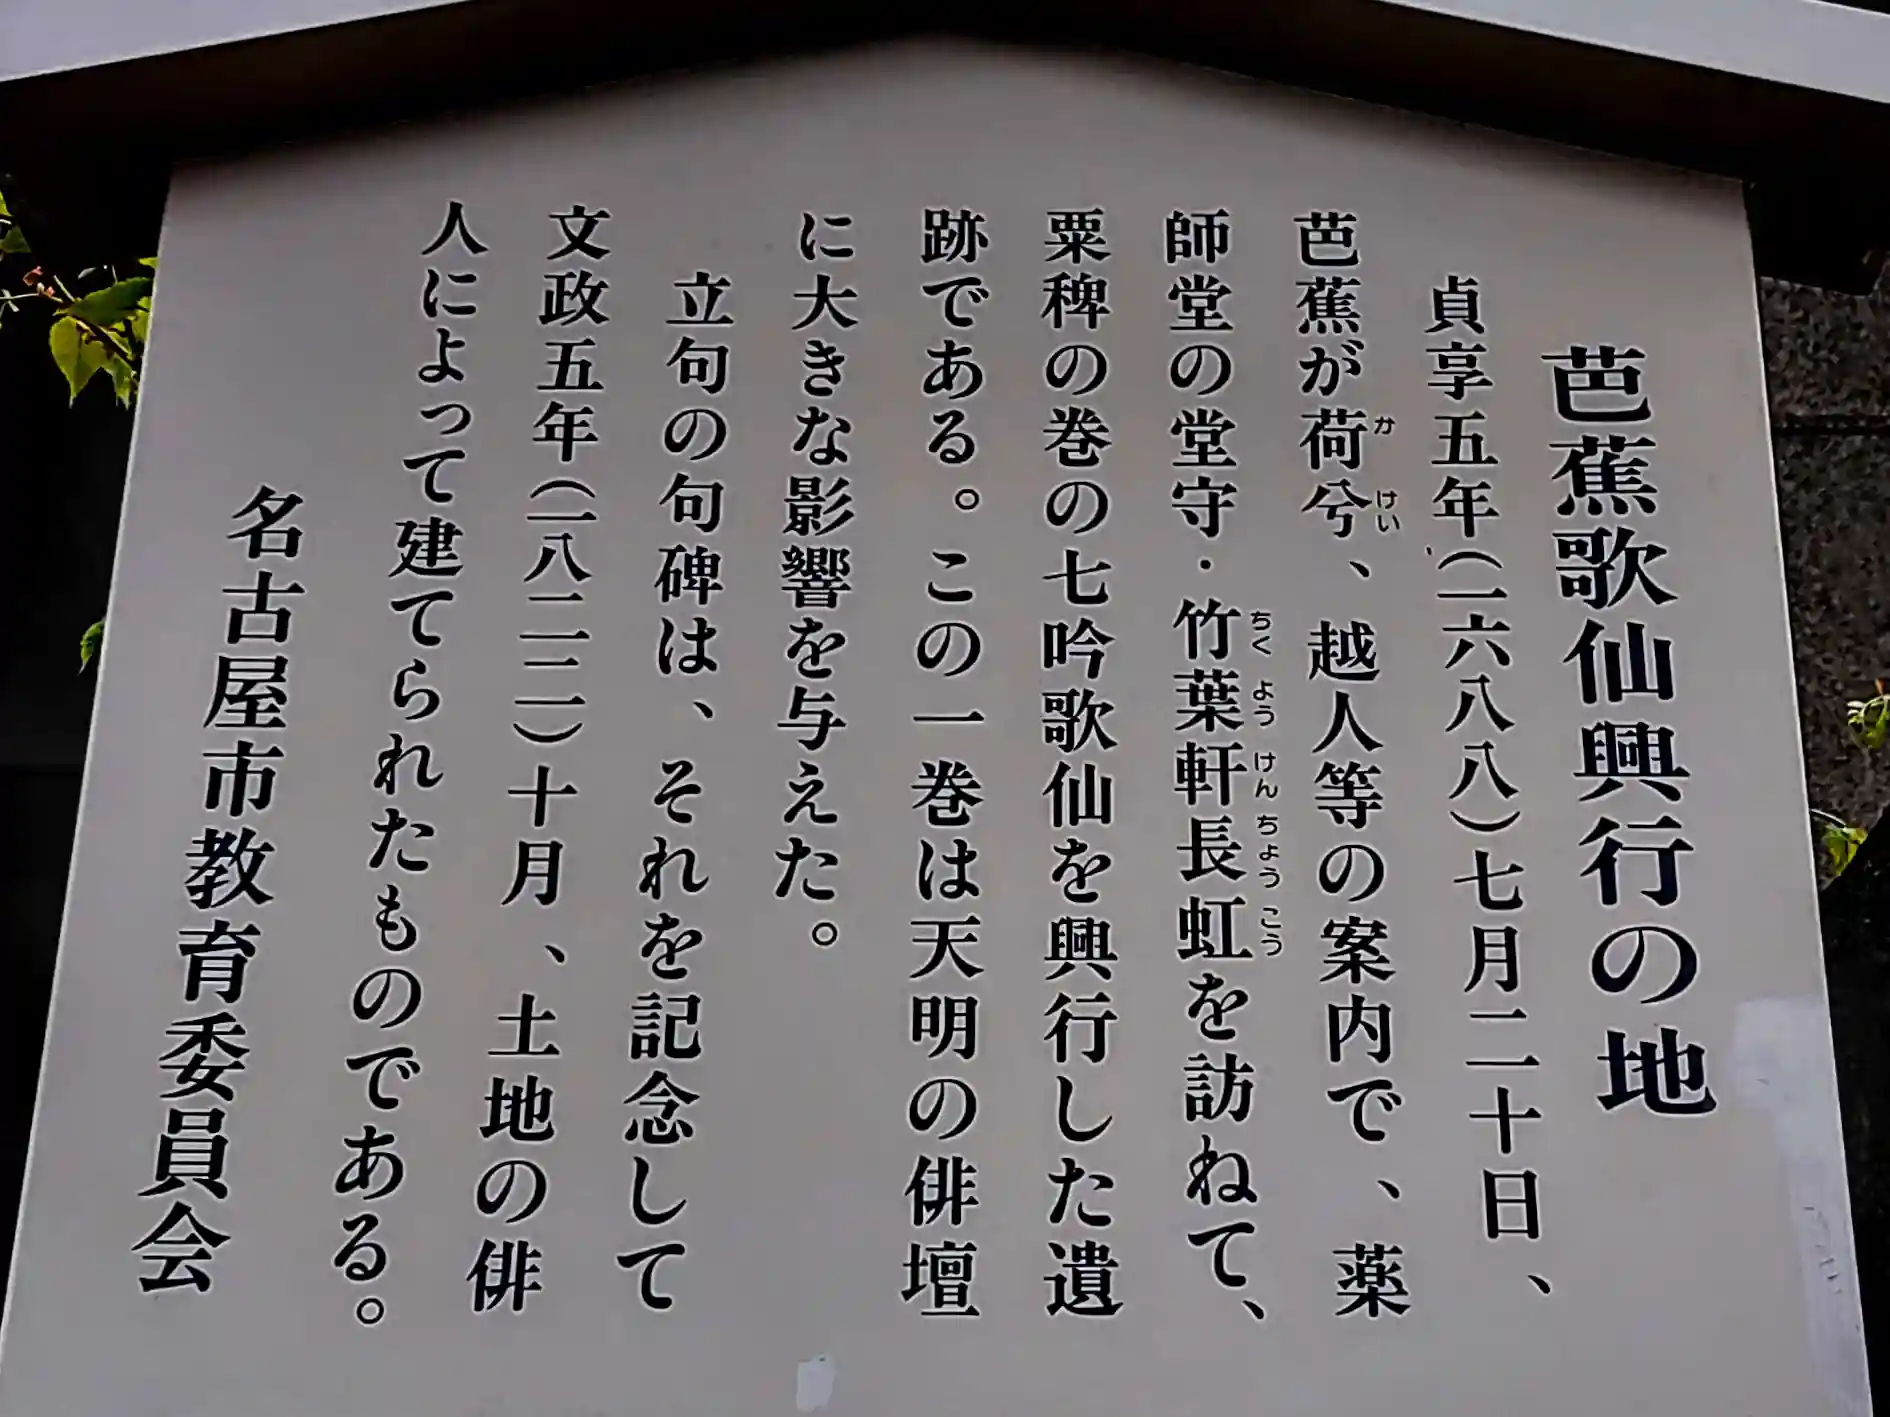 芭蕉歌仙興行の地
貞享五年(一六八八)七月二十日、
芭蕉が荷兮、越人等の案内で、薬
師堂の堂守・竹葉軒長虹を訪ねて、
粟稗の巻の七吟歌仙を興行した遺
跡である。この一巻は天明の俳壇
に大きな影響を与えた。
立句の句碑は、それを記念して
文政五年(一八二二)十月、土地の俳
人によって建てられたものである。
名古屋市教育委員会
か
けい
ちく よう けん ちよう こう